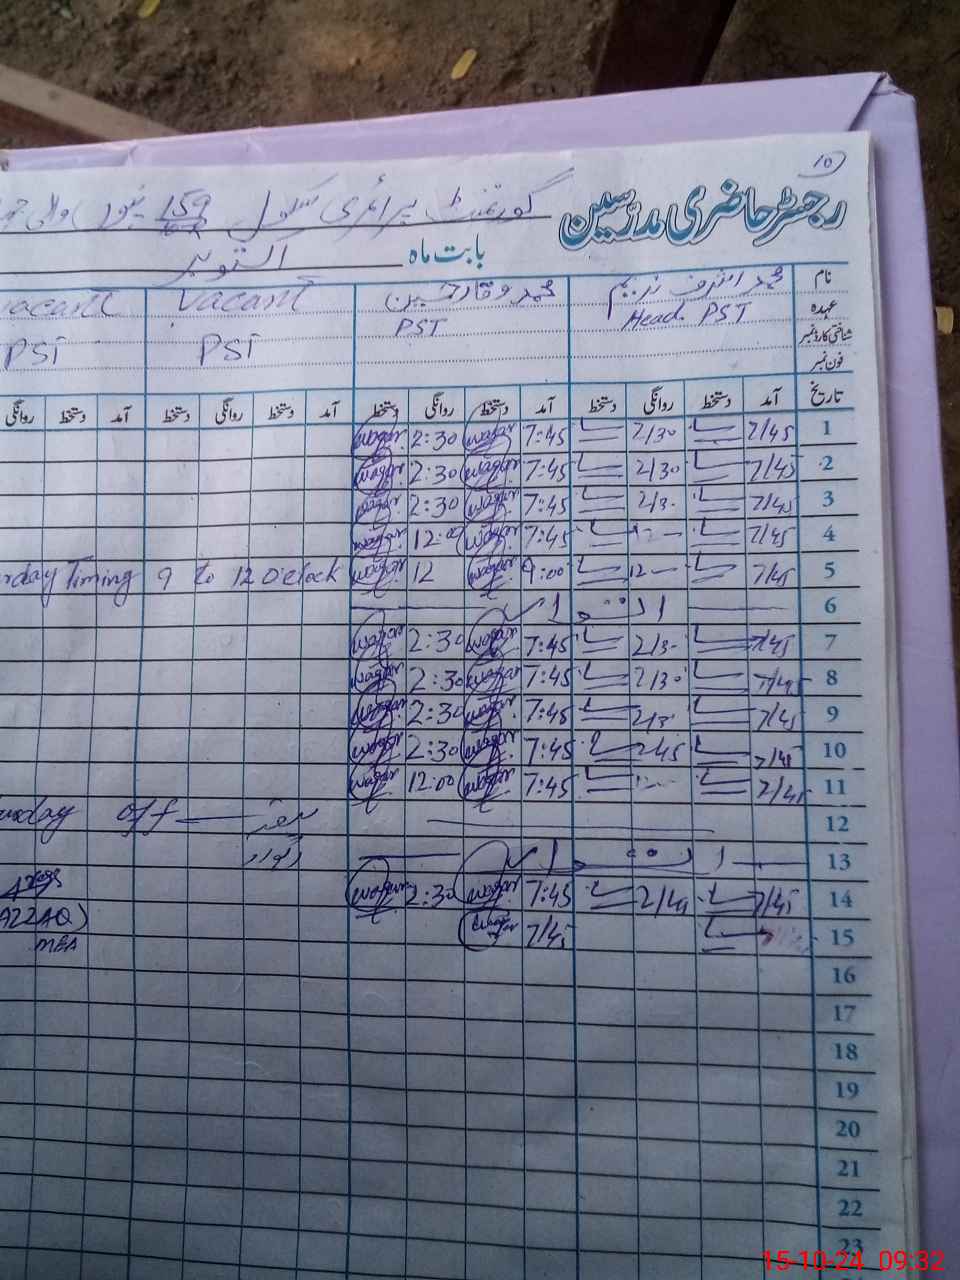 10
رجسٹر حاضری مدرسین گورنمنٹ پرائمری سکول 159
بابت ماہ اکتوبر
نام محمد اشرف ندیم محمد وقار حسین Vacant vacant
عہدہ Head. PST PST PST PST
شناختی کارڈ نمبر
فون نمبر
تاریخ آمد دستخط روانگی دستخط آمد دستخط روانگی دستخط آمد دستخط روانگی دستخط آمد دستخط روانگی
1 7/45 2/30 7:45 waqar 2:30 waqar
2 7/45 2/30 7:45 waqar 2:30 waqar
3 7/45 2/30 7:45 waqar 2:30 waqar
4 7/45 12 7:45 waqar 12:00 waqar
5 7/45 12 9:00 waqar 12 waqar Timing 9 to 12 O'clock
6 اتوار
7 7/45 2/30 7:45 waqar 2:30 waqar
8 7/45 2/30 7:45 waqar 2:30 waqar
9 7/45 2/3 7:45 waqar 2:30 waqar
10 7/45 45 7:45 waqar 2:30 waqar
11 7/45 12 7:45 waqar 12:00 waqar
12 ہفتہ off
13 اتوار اتوار
14 7/45 7:45 waqar 2:30 waqar
15 7/45 waqar
AZZAQ)
MEA
16
17
18
19
20
21
22
23
15-10-24 09:32